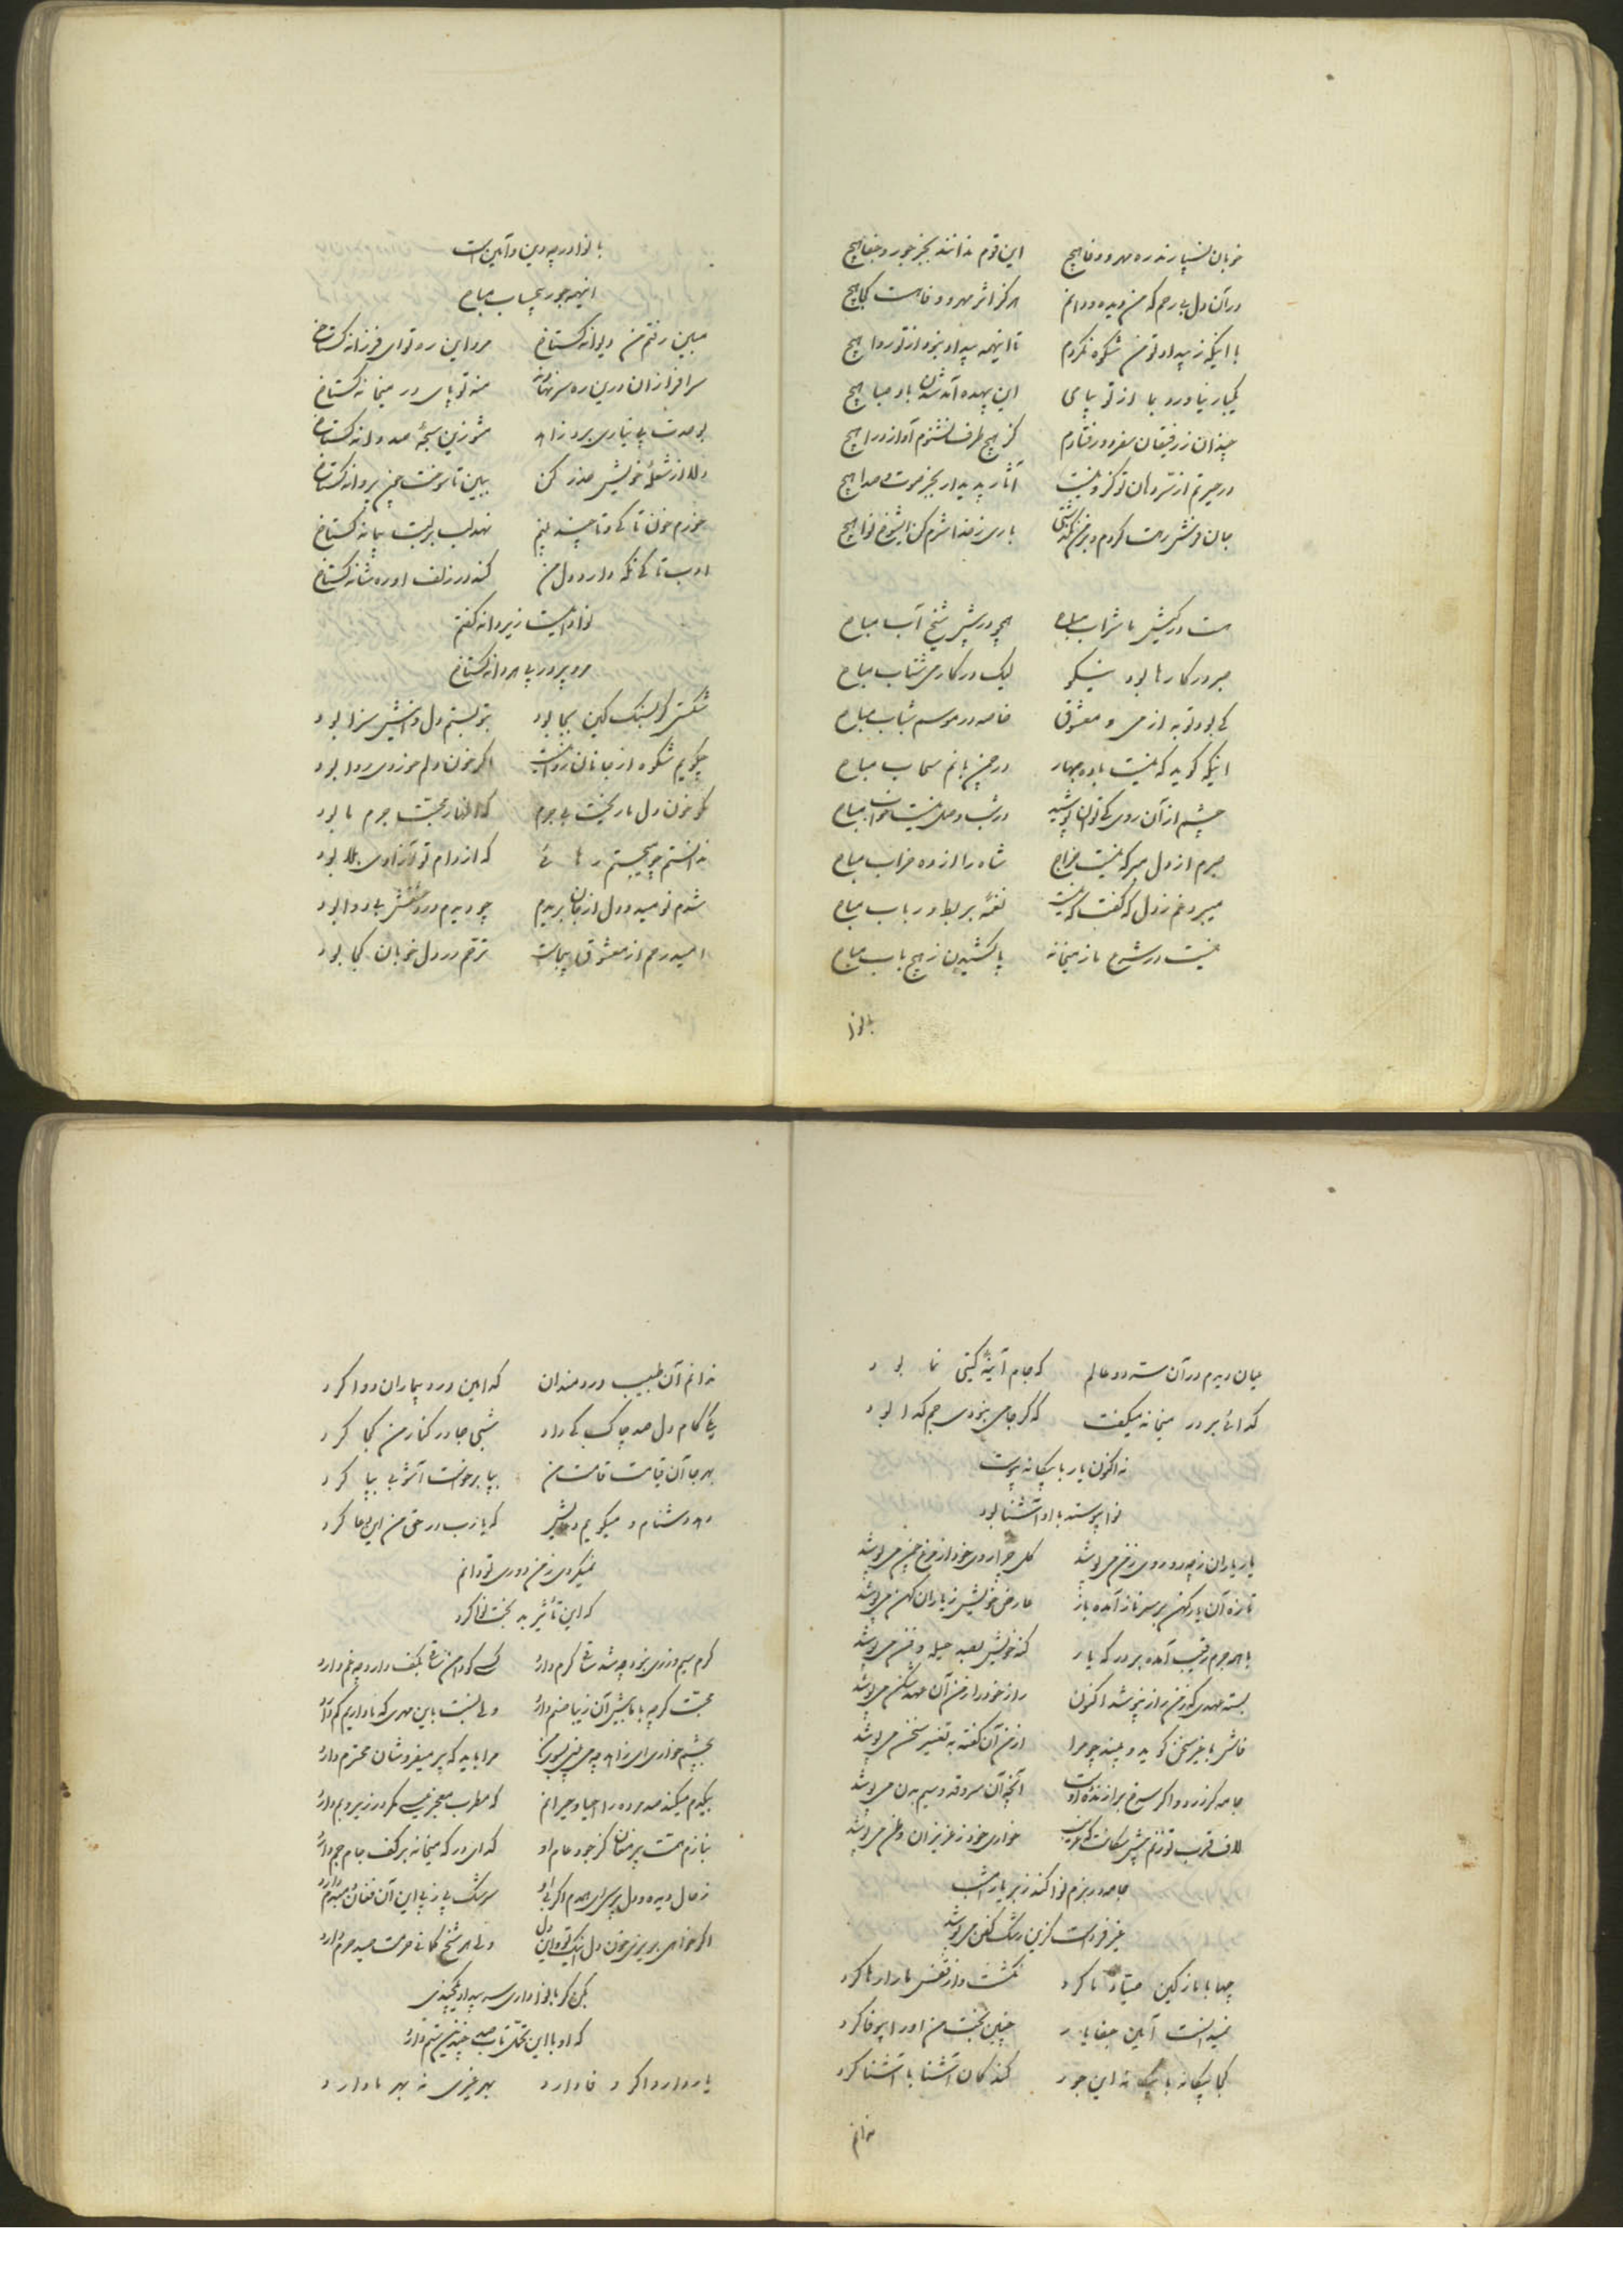 خوبان نسپارند ره مهر و وفا هیچ این قوم ندانند بجز جور و جفا هیچ
در آن دل بیرحم که من دیده و دانم هرگز اثر مهر و وفا هست کجا هیچ
با اینکه ز بیداد تو من شکوه نکردم تا اینهمه بیداد نبود از تو روا هیچ
یکبار نیاورد بما از تو پیامی این بیهده آمد شدن باد صبا هیچ
چندان ز رفیقان سفر دور فتادم کز هیچ طرف نشنوم آواز درا هیچ
در حیرتم از سر دهان تو کزو نیست آثار پدیدار بجز صوت و صدا هیچ
جان در رهت کردم و بر من نگذشتی باری ز خدا شرم کن ای شوخ نوا هیچ
هست در کیش ما شراب مباح همچو در پیش شیخ آب مباح
صبر در کارها بود نیکو لیک در کار می شتاب مباح
کی بود توبه از می و معشوق خاصه در موسم شباب مباح
اینکه گوید که نیست باده بهار در چمن سحاب مباح
چشم از آن روی کی توان پوشید در شب وصل نیست خواب مباح
صبرم از دل مبر که نیست خراج شاه را از ده خراب مباح
میبرد غم ز دل که گفت که نیست نغمهٔ بربط و رباب مباح
نیست در شرع ما ز میخانه پا کشیدن ز هیچ باب مباح
با نوا
با نوا در چه دین و آئین است
اینهمه جور بیحساب مباح
مبین رفتن من دیوانه گستاخ مرو این ره تو ای فرزانه گستاخ
سرافرازان درین ره سر نهادند منه تو پای در میخانه گستاخ
بوحدت پی نیاری برد زاهد مشو زین سبحهٔ صد دانه گستاخ
دلا از شعلهٔ خویش حذر کن ببین تا سوخت چون پروانه گستاخ
خورم خون تا کی و تا چند بینم نهد لب بر لبت پیمانه گستاخ
ادب تا کی نگه دارد دل من کند در زلف او ره شانه گستاخ
نوا نیست زیر دانه گفتم
مرو پر در پی هر دانه گستاخ
شکستن گر بسنگ کین بجا بود بتو بستم دل و اینش سزا بود
چگویم شکوه از جانان روا نیست اگر خون دلم خوردی روا بود
نگو خون دل ما ریخت بی جرم که اظهار محبت جرم ما بود
ندانستم چو میجستم رهائی که از دام تو آزادی بلا بود
شدم نومید و دل از جان بریدم چو دیدم درد عشقش بی دوا بود
امید رحم از معشوق بیجاست ترحم در دل خوبان کجا بود
عیان دیدم در آن مست دو عالم که جام آئینهٔ گیتی نما بود
گدائی بر در میخانه میگفت که گر جامی نبودی جم گدا بود
نه اکنون یار با بیگانه پیوست
نوا پیوسته با او آشنا بود
یار یاران ز چه رو روی ز من می پوشد گل چرا روی خود از مرغ چمن می پوشد
تازه آن یار کهن بر سر ناز آمده باز عارض خویش ز یاران کهن می پوشد
با همه جرم رقیب آمده بر در که یار گنه خویش بصد حیله و فن می پوشد
بسته عهدی که ز من راز نپوشد اکنون راز خود را ز من آن عهد شکن می پوشد
فاش با غیر سخن گوید و بیند چو مرا از من آن گفته به تغییر سخن می پوشد
جامه گر زرد و اگر سرخ برازندهٔ اوست آنچه آن سرو قد و سیم بدن می پوشد
لاف قرب تو زنم پیش سگانت که غریب خواری خود ز عزیزان وطن می پوشد
جامه در بزم نوا کند ز بر یار امشب
غیر فرداست کزین رشک کفن می پوشد
چها با ما ز کین صیاد ما کرد نکشت و از قفس ما را رها کرد
نمیدانست آئین جفا یار چنین بخت من او را بیوفا کرد
کجا بیگانه با بیگانه این جور کند کان آشنا با آشنا کرد
ندانم
ندانم آن طبیب دردمندان کدامین درد بیماران دوا کرد
یکی کام دل صد چاک کی داد شبی جا در کنار من کجا کرد
بهر جا آن قیامت قامت من بپا برخواست آشوبی بپا کرد
دهد دشنام و میگویم دعایش که یا رب در حق من این دعا کرد
نمیکردی ز من دوری تو دانم
که این تأثیر بد بخت نوا کرد
گرم سیم و زری نبود چه شد ساقی کرم دارد کسی کو دامن ساقی بکف دارد چه غم دارد
محبت گرچه با ما بیش آن زیبا صنم دارد ولی نسبت باین مهری که ما داریم کم دارد
بچشم خواری ای زاهد چه می بینی بسوی من مرا باید که پیر میفروشان محترم دارد
بیکدم میکند صد مرده را احیا و حیرانم که مطرب معجز عیسی مگر در زیر و بم دارد
بنازم همت پیر مغان کز جود عام او گدای درگه میخانه بر کف جام جم دارد
ز حال دیده و دل پرسی ای همدم اگر سرشک پی ز پی این آن فغان دمبدم دارد
اگر خواهی بریزی خون دل اینک تو و این دل ولی هر شیخ کافی حرمت صید حرم دارد
مکن گر با نوا داری سر بیداد یکچندی
که او با این تحمل تاب صد چندین ستم دارد
یار دارد اگر وفا دارد بهر غیری نه بهر ما دارد